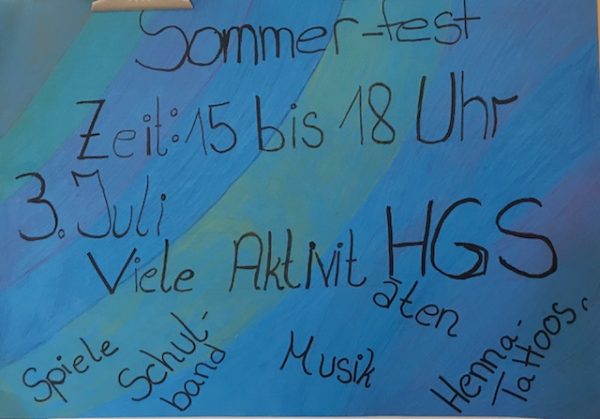 Sommer-fest
Zeit: 15 bis 18 Uhr
3. Juli
HGS
Viele Aktivit
äten
Spiele
Schul-
band
Musik
Henna-
Tattoos